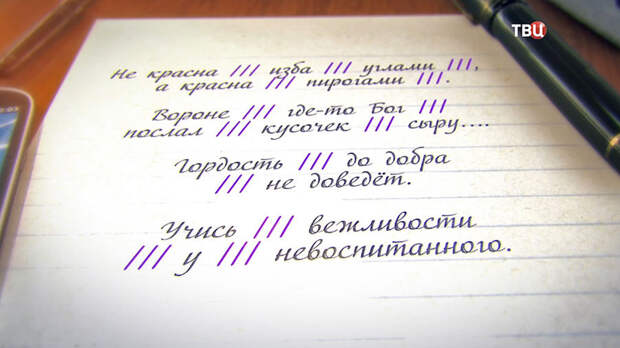 ТВЦ
Не красна /// изба /// углами ///,
а красна /// пирогами ///.
Вороне /// где-то Бог ///
послал /// кусочек /// сыру....
Гордость /// до добра
/// не доведёт.
Учись /// вежливости
/// у /// невоспитанного.